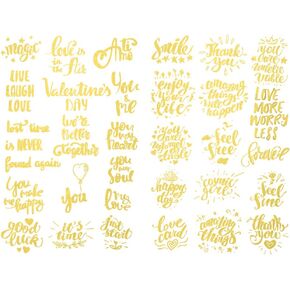 magic
love is
in the
Air
LIVE
LAUGH
LOVE
Valentine's
DAY
You
me
lost time
is NEVER
found again
we're
Better
together
you
my
heart
You
make
me happy
you
my
Soul
good
luck
it's
time
just
start
Smile
Thank
you
you
are
LOVE
MORE
WORRY
LESS
enjoy
amazing
things
happen
feel
free
happy
day
cosmic
girl
feel
fine
love
card
amazing
things
thank
you